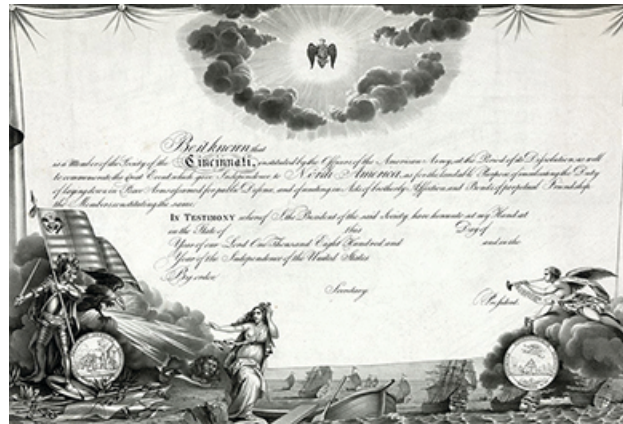 Be it known that
is a Member of the Society of the Cincinnati, instituted by the Officers of the American Army, at the Period of its Dissolution, as well
to commemorate the great Event which gave Independence to North America, as for the laudable Purpose of inculcating the Duty
of laying down in Peace Arms assumed for public Defence, and of uniting in Acts of brotherly Affection, and Bonds of perpetual Friendship
the Members constituting the same.
IN TESTIMONY whereof I the President of the said Society have hereunto set my Hand at
in the State of this Day of
Year of our Lord One Thousand Eight Hundred and and in the
Year of the Independence of the United States
By order
Secretary.
President.